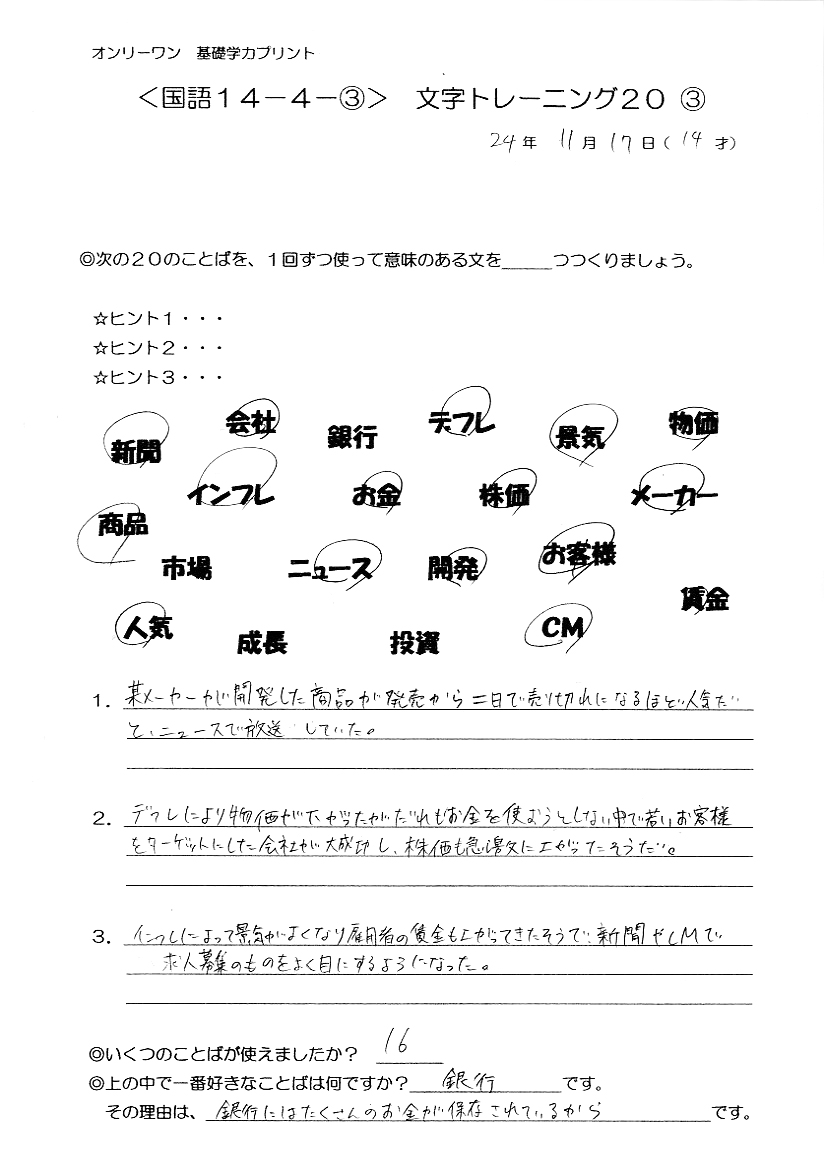 オンリーワン 基礎学力プリント
＜国語１４－４－③＞ 文字トレーニング２０ ③
24年 11月 17日( 14才)
◎次の２０のことばを、１回ずつ使って意味のある文を＿＿＿つつくりましょう。
☆ヒント１・・・
☆ヒント２・・・
☆ヒント３・・・
新聞 会社 銀行 デフレ 景気 物価
インフレ お金 株価 メーカー
商品 市場 ニュース 開発 お客様
人気 成長 投資 CM 賃金
1. 某メーカーが開発した商品が発売から二日で売り切れになるほど人気だ
と、ニュースで放送していた。
2. デフレにより物価が下がったがだれもお金を使おうとしない中で若いお客様
をターゲットにした会社が大成功し、株価も急激に上がったそうだ。
3. インフレによって景気がよくなり雇用者の賃金も上がってきたそうで新聞やCMで
求人募集のものをよく目にするようになった。
◎いくつのことばが使えましたか？ 16
◎上の中で一番好きなことばは何ですか？ 銀行 です。
その理由は、 銀行にはたくさんのお金が保存されているから です。